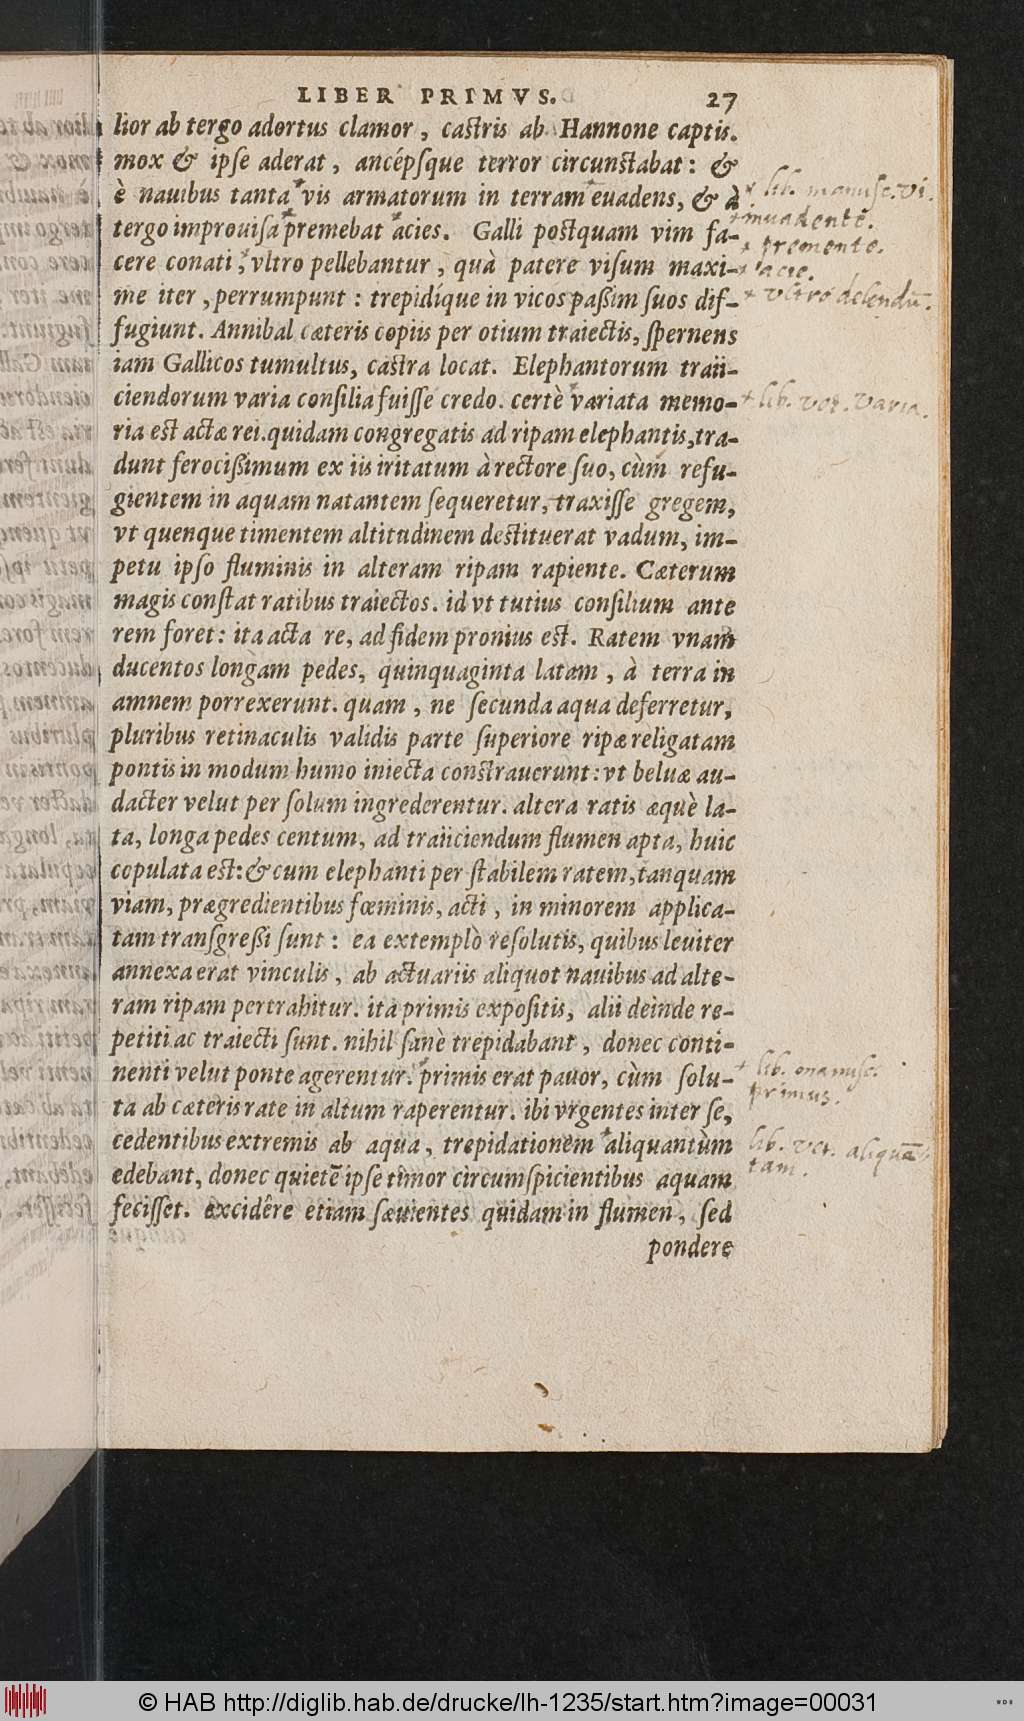 LIBER PRIMVS. 27
lior ab tergo adortus clamor, castris ab Hannone captis.
mox & ipse aderat, ancépsque terror circunstabat: &
è nauibus tanta vis armatorum in terram euadens, & à
tergo improuisa premebat acies. Galli postquam vim fa-
cere conati, vltro pellebantur, quà patere visum maxi-
me iter, perrumpunt: trepidíque in vicos paßim suos dif-
fugiunt. Annibal cæteris copiis per otium traiectis, spernens
iam Gallicos tumultus, castra locat. Elephantorum traii-
ciendorum varia consilia fuisse credo. certè variata memo-
ria est actæ rei. quidam congregatis ad ripam elephantis, tra-
dunt ferocißimum ex iis iritatum à rectore suo, cùm refu-
gientem in aquam natantem sequeretur, traxisse gregem,
vt quenque timentem altitudinem destituerat vadum, im-
petu ipso fluminis in alteram ripam rapiente. Cæterum
magis constat ratibus traiectos. id vt tutius consilium ante
rem foret: ita acta re, ad fidem pronius est. Ratem vnam
ducentos longam pedes, quinquaginta latam, à terra in
amnem porrexerunt. quam, ne secunda aqua deferretur,
pluribus retinaculis validis parte superiore ripæ religatam
pontis in modum humo iniecta constrauerunt: vt beluæ au-
dacter velut per solum ingrederentur. altera ratis æquè la-
ta, longa pedes centum, ad traiiciendum flumen apta, huic
copulata est: & cum elephanti per stabilem ratem, tanquam
viam, prægredientibus fœminis, acti, in minorem applica-
tam transgreßi sunt: ea extemplò resolutis, quibus leuiter
annexa erat vinculis, ab actuariis aliquot nauibus ad alte-
ram ripam pertrahitur. ita primis expositis, alii deinde re-
petiti ac traiecti sunt. nihil sanè trepidabant, donec conti-
nenti velut ponte agerentur. primis erat pauor, cùm solu-
ta ab cæteris rate in altum raperentur. ibi vrgentes inter se,
cedentibus extremis ab aqua, trepidationem aliquantùm
edebant, donec quietē ipse timor circumspicientibus aquam
fecisset. excidêre etiam sæuientes quidam in flumen, sed
pondere
lib. manusc. vi.
inuadente.
+ premente.
+ acie.
+ vltro delendū.
+ lib. vet. varia.
+ lib. manusc.
primus.
lib. vet. aliquā
tam.
© HAB http://diglib.hab.de/drucke/lh-1235/start.htm?image=00031